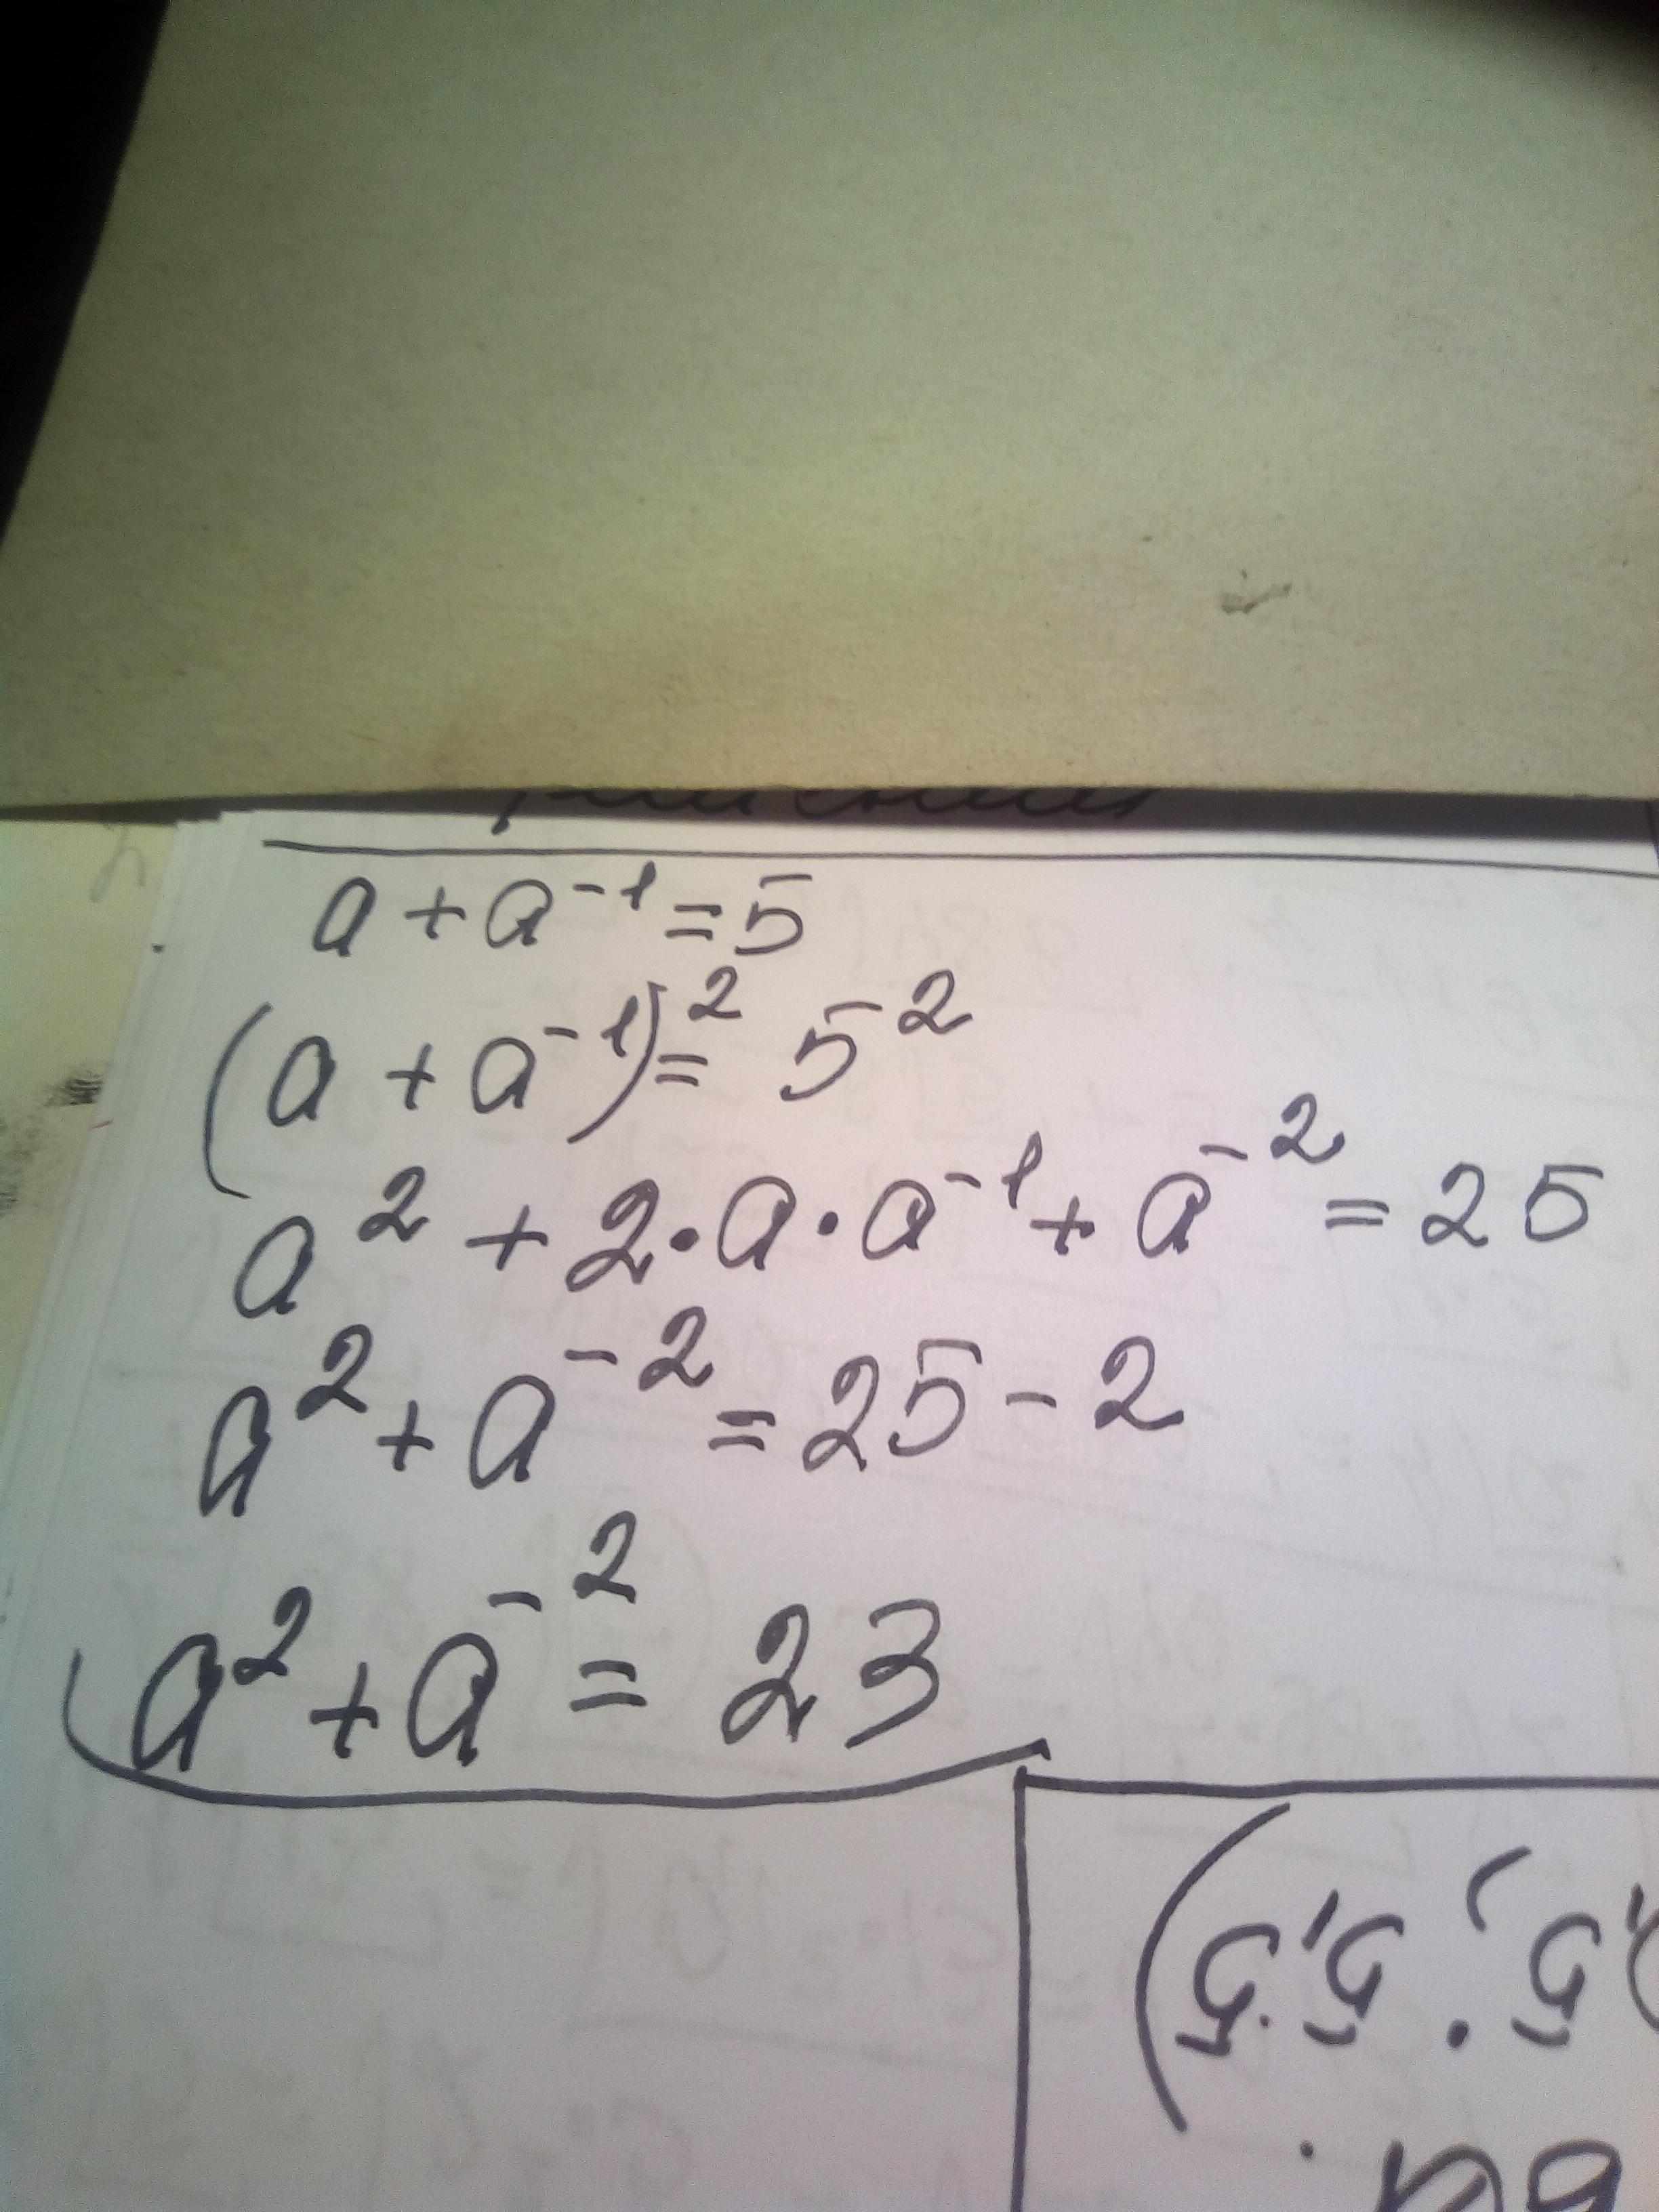 a + a⁻¹ = 5
(a + a⁻¹)² = 5²
a² + 2·a·a⁻¹ + a⁻² = 25
a² + a⁻² = 25 - 2
a² + a⁻² = 23